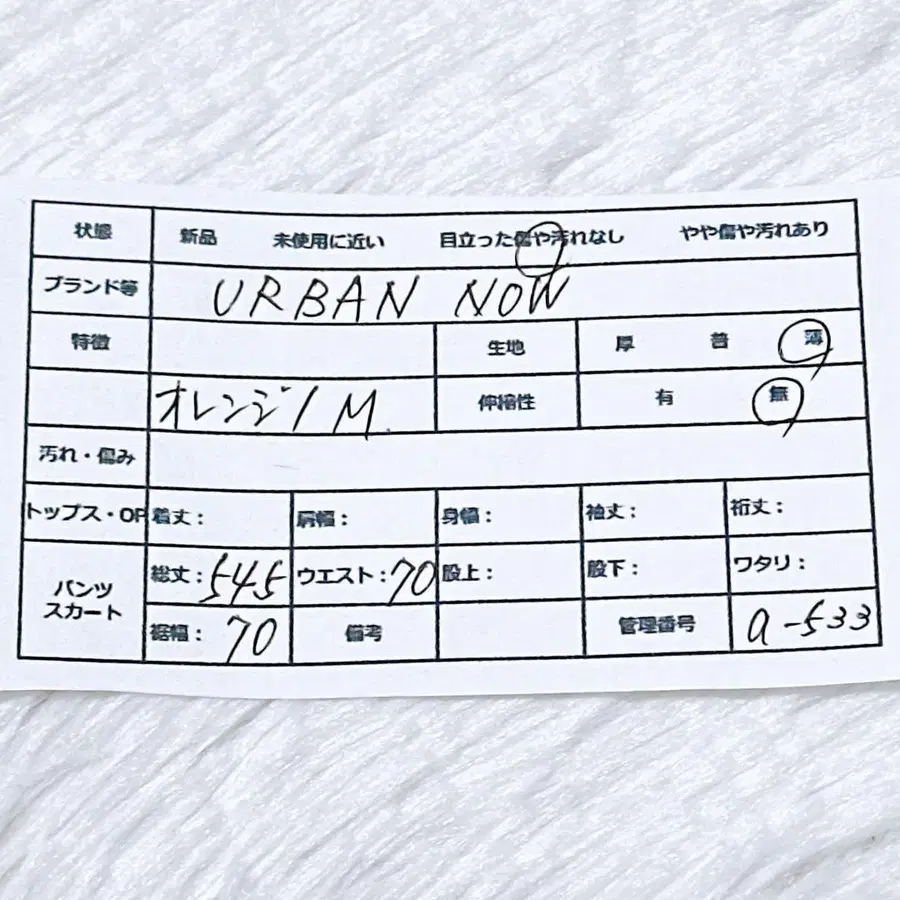 状態 新品 未使用に近い 目立った傷や汚れなし やや傷や汚れあり
ブランド等 URBAN NOW
特徴 生地 厚 普 薄
オレンジ/M 伸縮性 有 無
汚れ・傷み
トップス・OP 着丈: 肩幅: 身幅: 袖丈: 裄丈:
パンツ スカート 総丈:54.5 ウエスト:70 股上: 股下: ワタリ:
裾幅: 70 備考 管理番号 a-533